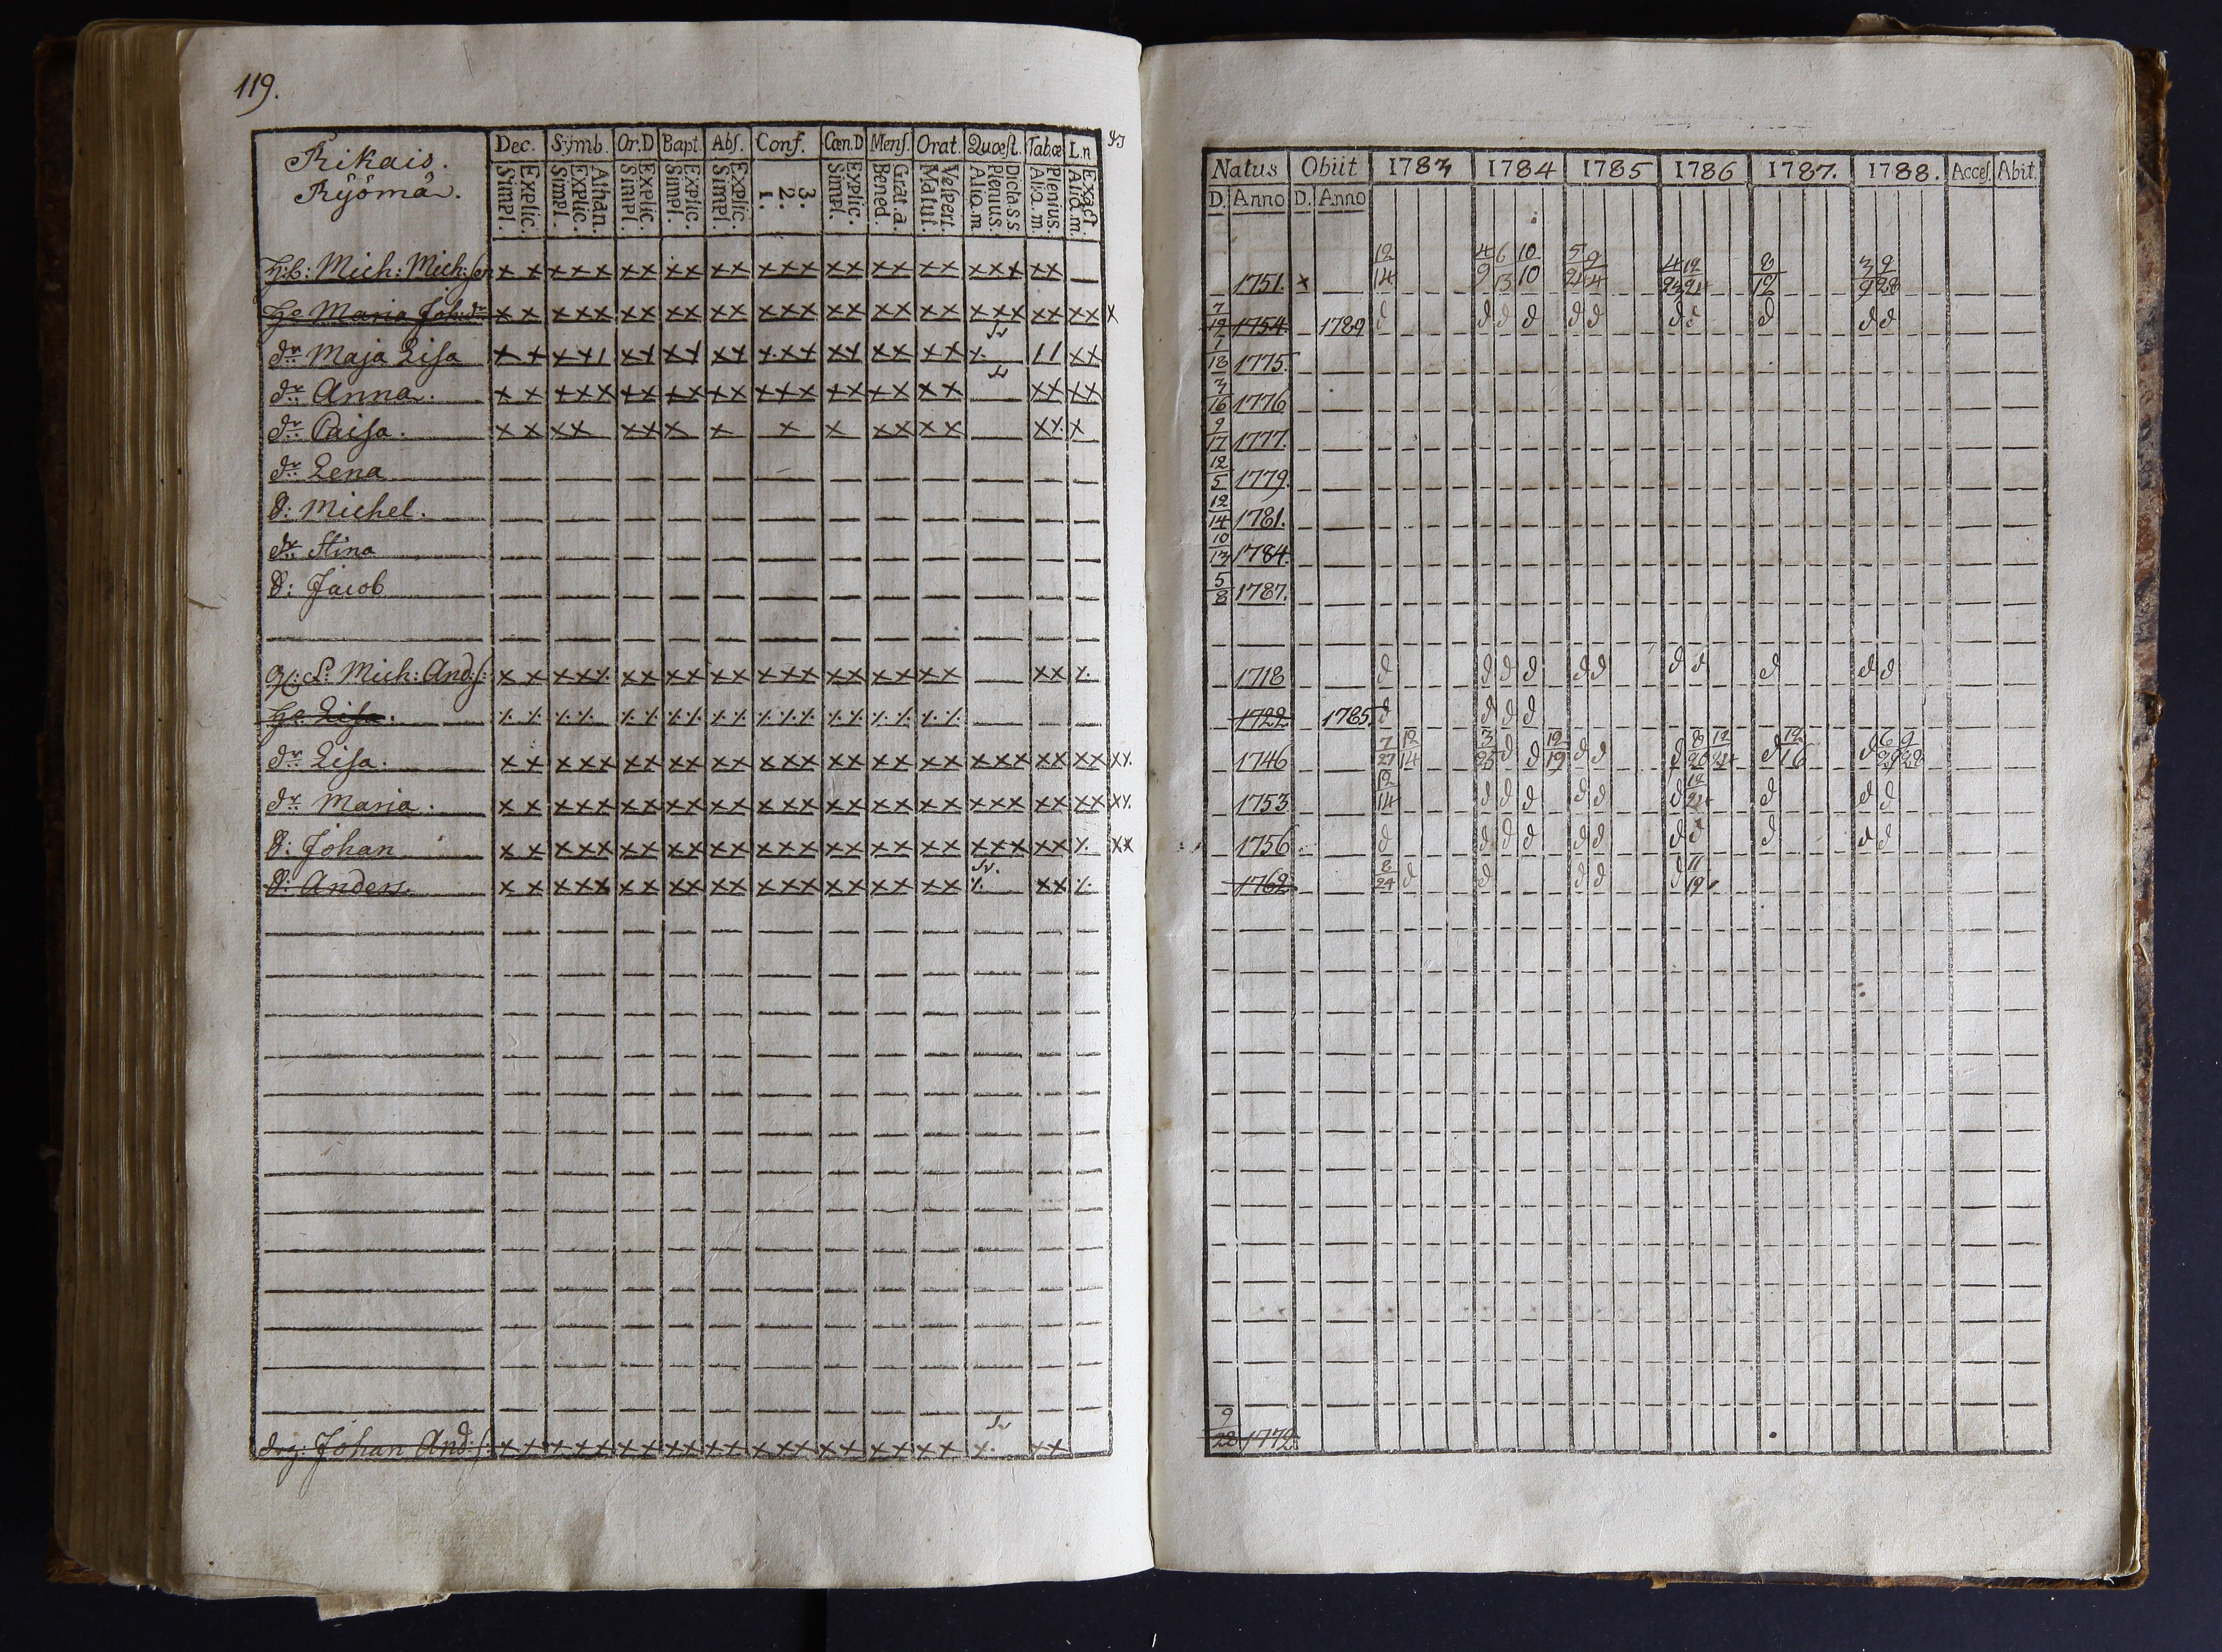 119.
Rikais.
Ryömä.
Dec. Symb. Or.D Bapt. Abs. Conf. Cœn.D Mens. Orat. Quæst. Tab.œ L.n
Simpl. Explic. Simpl. Explic. Athan. Simpl. Explic. Simpl. Explic. Simpl. Explic. 1. 2. 3. Simpl. Explic. Bened. Grat.a. Matut. Vespert. Aliq.m Plenius. Dicta.s.s Aliq.m Plenius. Aliq.m. Exact.
H:b: Mich: Mich:son x x x x x x x x x x x x x x x x x x x x x x x x x
Ho Maria Joh:dr x x x x x x x x x x x x x x x x x x x x x x x x x x x x
dr: Maja Lisa
dr: Anna.
dr: Caisa.
dr: Lena
d: Michel.
dr: Stina
d: Jacob
Mich: And:s:
Ho Lisa.
dr: Lisa.
dr: Maria.
d: Johan
d: Anders.
Johan And:s:
Natus Obiit 1783 1784 1785 1786 1787. 1788. Acces. Abit.
D. Anno D. Anno
1751. x 12/14 4/9 6/13 10/10 5/24 9/4 4/23 12/24 8/12 3/9 9/28
7/19 1754 1789 d d d d d d d d d d d
1/18 1775.
3/16 1776
9/17 1777.
12/5 1779.
12/14 1781.
10/13 1784.
5/8 1787.
1718 d d d d d d d d d d d
1722 1785 d d d d
1746 7/27 12/14 3/25 d d 12/19 d d d 8/20 12/24 d 12/16 d 6/29 9/28
1753 12/14 d d d d d d 12/24 d d d
1756 d d d d d d d d d d d
1762 8/24 d d d d d 11/19
9/28 1772